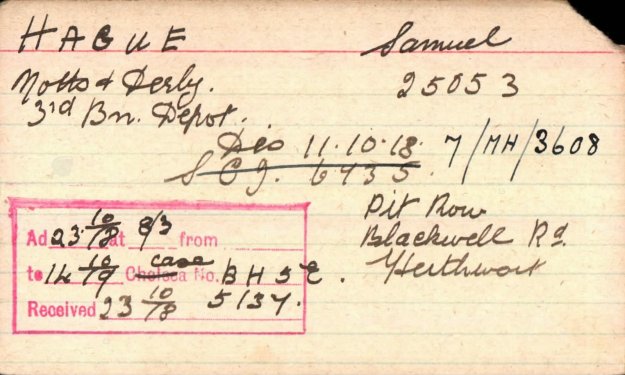 HAGUE Samuel
Notts & Derby. 25053
3rd Bn. Depot.
Dis 11.10.18. 7/MH/3608
6435.
Pit Row
Blackwell Rd.
Ad 23 10/18 at 8/3 from
to 14 10/19 Chelsea case No. BH5E.
Received 23 10/18 5137.